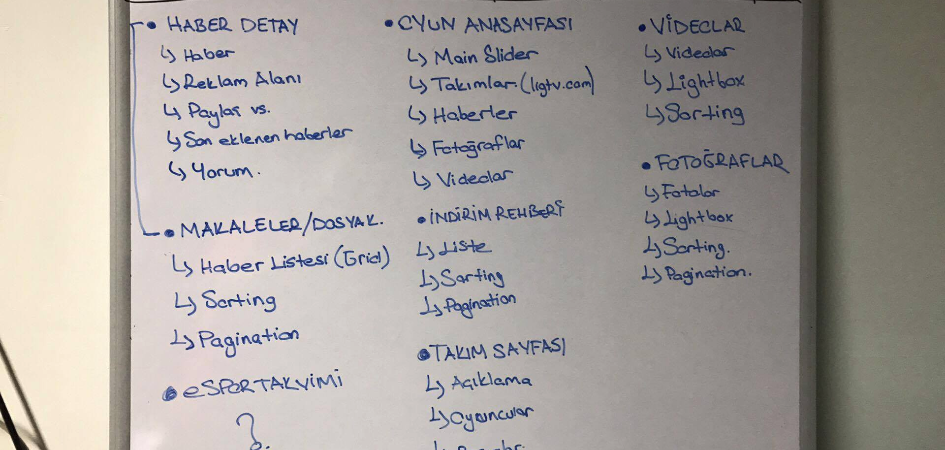 • HABER DETAY
↳ Haber
↳ Reklam Alanı
↳ Paylaş vs.
↳ Son eklenen haberler
↳ Yorum.
• MAKALELER/DOSYAK.
↳ Haber Listesi (Grid)
↳ Sorting
↳ Pagination
• eSPOR TAKVİMİ
?
• OYUN ANASAYFASI
↳ Main Slider
↳ Takımlar. (ligtv.com)
↳ Haberler
↳ Fotoğraflar
↳ Videolar
• İNDİRİM REHBERİ
↳ Liste
↳ Sorting
↳ Pagination
• TAKIM SAYFASI
↳ Açıklama
↳ Oyuncular
• VİDEOLAR
↳ Videolar
↳ Lightbox
↳ Sorting
• FOTOĞRAFLAR
↳ Fotolar
↳ Lightbox
↳ Sorting.
↳ Pagination.